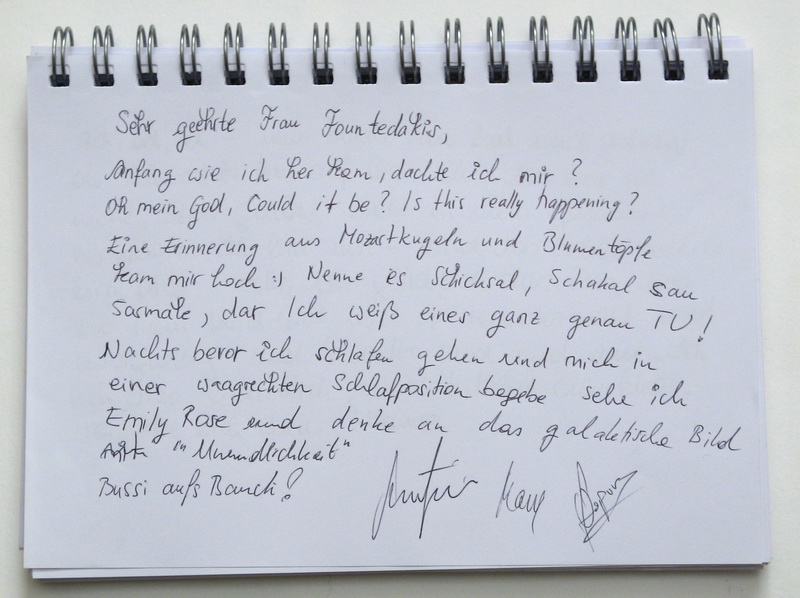 Sehr geehrte Frau Fountedakis,
Anfang wie ich her kam, dachte ich mir?
Oh mein God, Could it be? Is this really happening?
Eine Erinnerung aus Mozartkugeln und Blumentöpfe
kam mir hoch :) Nenne es Schicksal, Schakal sau
Sarmale, dar Ich weiß eines ganz genau TU!
Nachts bevor ich schlafen gehen und mich in
einer waagrechten Schlafposition begebe sehe ich
Emily Rose und denke an das galaktische Bild
"Unendlichkeit"
Bussi aufs Bauch!